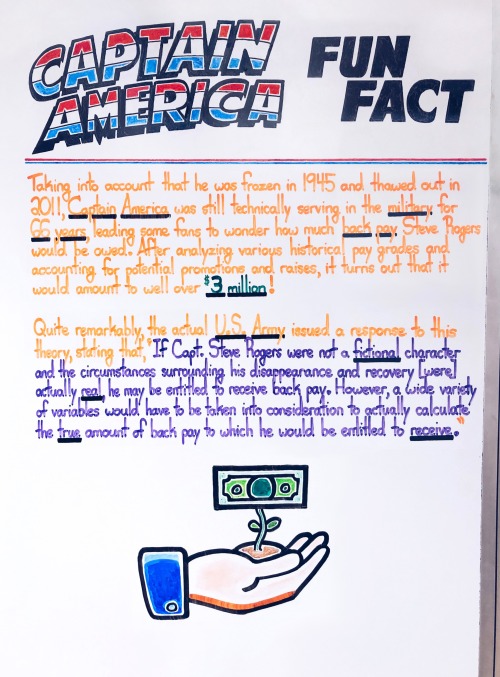 CAPTAIN
AMERICA
FUN
FACT
Taking into account that he was frozen in 1945 and thawed out in
2011, Captain America was still technically serving in the military for
66 years, leading some fans to wonder how much back pay Steve Rogers
would be owed. After analyzing various historical pay grades and
accounting for potential promotions and raises, it turns out that it
would amount to well over $3 million!
Quite remarkably, the actual U.S. Army issued a response to this
theory, stating that, "If Capt. Steve Rogers were not a fictional character
and the circumstances surrounding his disappearance and recovery [were]
actually real he may be entitled to receive back pay. However, a wide variety
of variables would have to be taken into consideration to actually calculate
the true amount of back pay to which he would be entitled to receive."